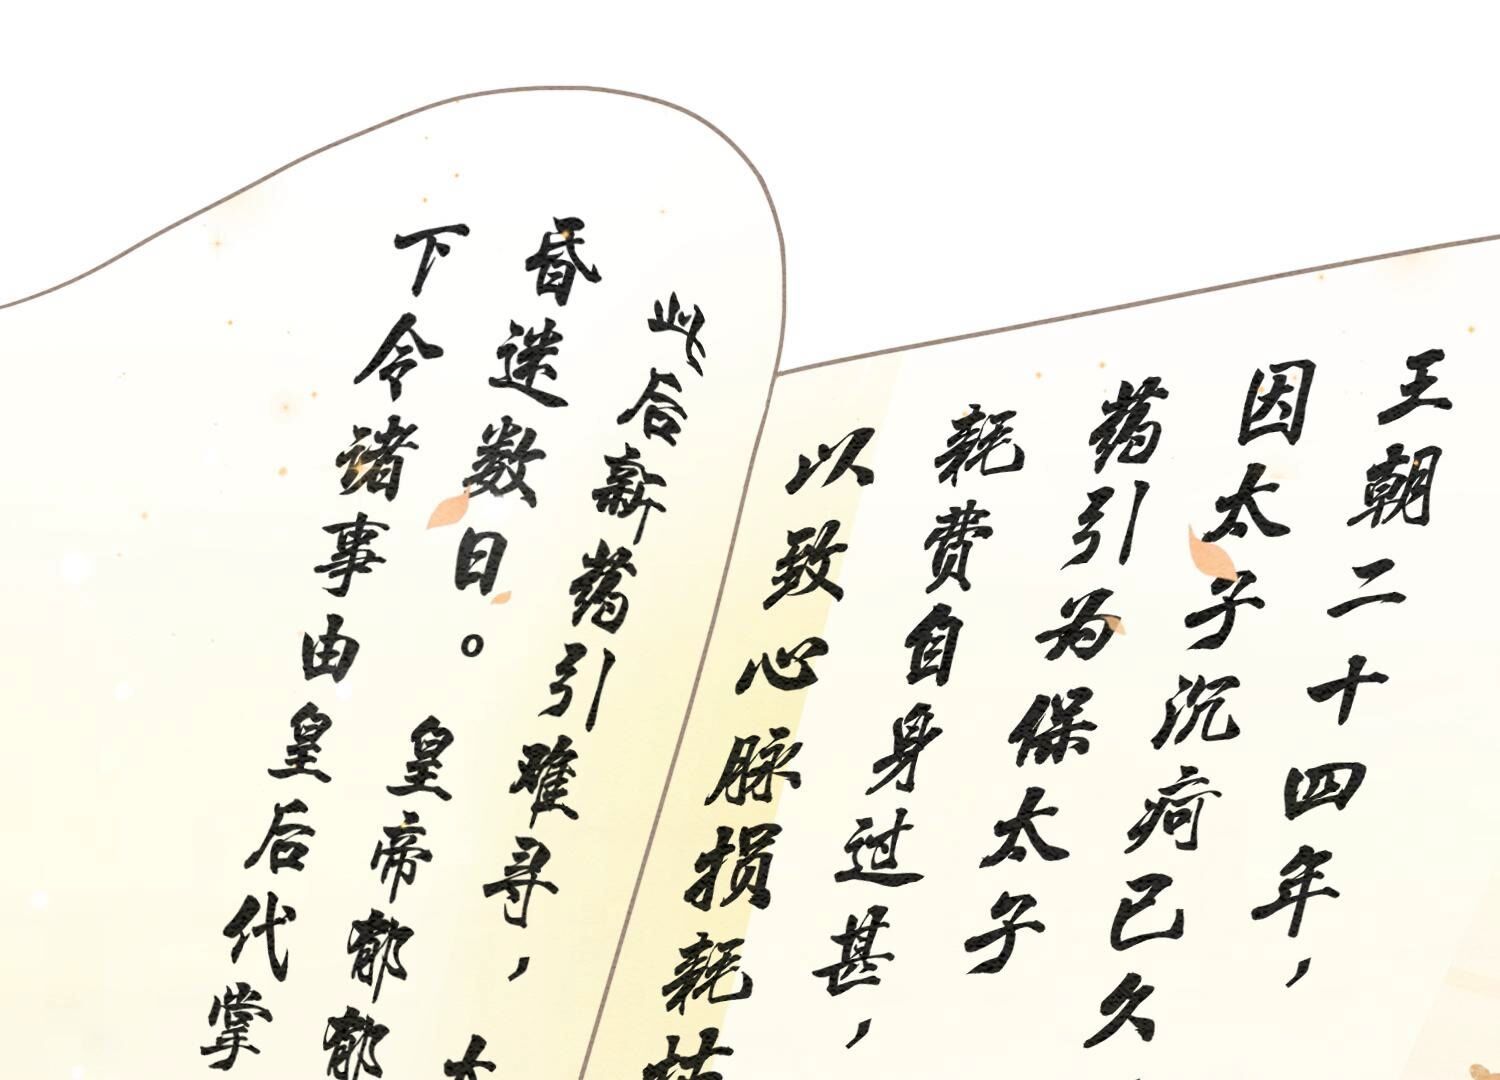 王朝二十四年，
因太子沉疴已久
药引为保太子
耗费自身过甚，
以致心脉损耗
此后新药引难寻，
昏迷数日。
皇帝郁郁
下令诸事由皇后代掌